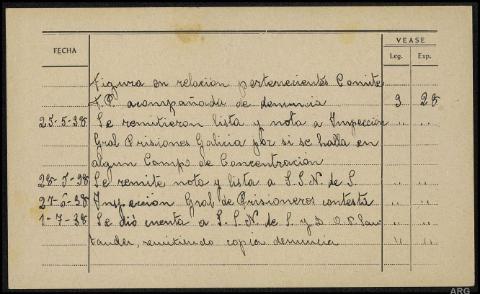 VEASE
FECHA Leg. Exp.
Figura en relacion pertenecientes Comite
F.P. acompañada de denuncia 3 28
23-5-38 Se remitieron lista y nota a Inspeccion " "
Gral Prisiones Galicia por si se halla en
algun Comp. de Concentracion
28-5-38 Se remite nota y lista a S.S.N. de S. " "
27-6-38 Inspeccion Gral de Prisioneros contesta " "
1-7-38 Se dió cuenta a S.S.N. de S. y D.O.P. San- " "
tander, remitiendo copia denuncia " "
ARG